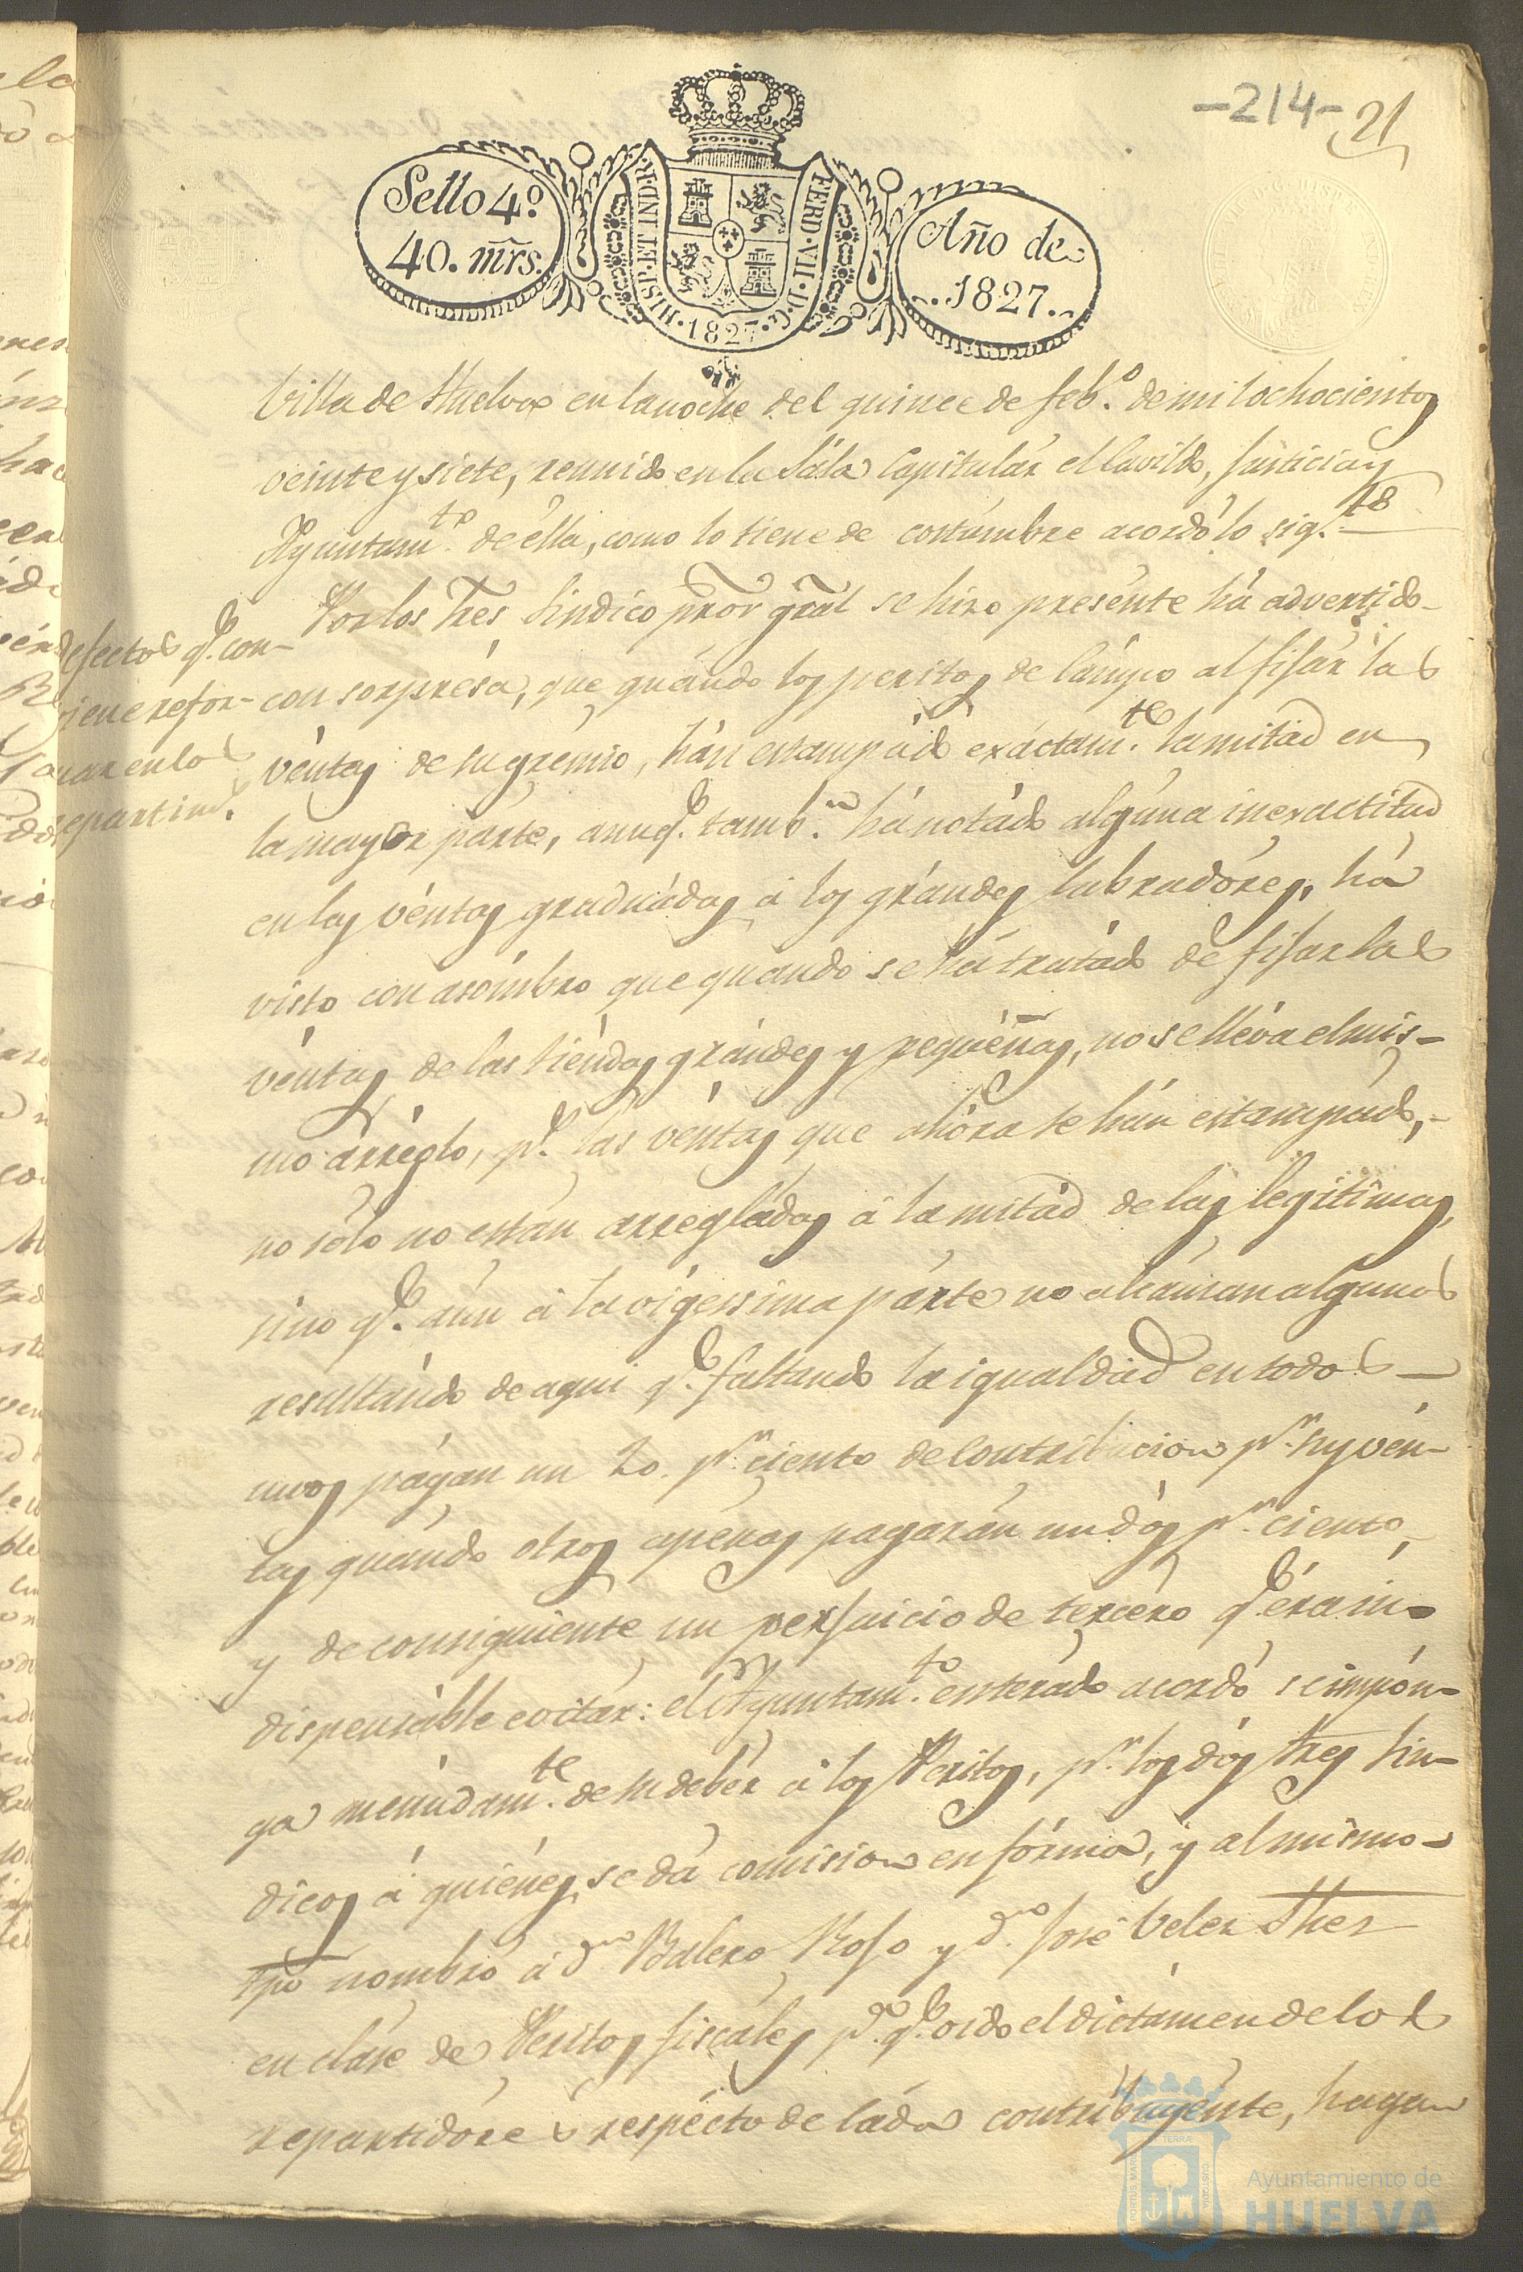 -214-
21
Sello 4º.
40. mrs.
HISP. ET IND. R.
FERD. VII. D. G.
1827
Año de
1827.
Villa de Huelva en la noche del quince de feb.o de mil ochocientos
veinte y siete, reunido en la Sala Capitulár el Cavildo, Justicia y
Ayuntam.to de élla, como lo tiene de costúmbre acordó lo sig.te
Por los Sres Sindico pror gral se hizo presénte há advertido
con sorprésa, que quando los peritos de Cámpo al fijár las
véntas de su grémio, hán estampádo exáctam.te la mitad en
la mayor párte, aunq.e tamb.n há notádo algúna inexactitud
en las véntas graduádas á los grándes labradóres, há
visto con asómbro que quando se há tratádo de fijar las
véntas de las tiéndas grándes y pequéñas, no se lléva el mis-
mo arréglo, p.s las véntas que ahóra se hán estampádo,
no sólo no están arregládas á la mitád de las legítimas,
sino q.e aún á la vigessima párte no alcánzan algunos
resultándo de aqui q.e faltando la igualdad en todos
unos págan un 20. p.r ciento de Contribucion p.r sus vén-
tas quándo otros apénas pagarán un dós p.r ciento,
y de consiguiente un perjuicio de tercéro q.e éra in-
dispensáble evitár: el Ayuntam.to enterádo acordó se impón-
ga menúdam.te de su debér á los Peritos, p.r los dós Sres Sin-
dicos á quiénes se dá comision en fórma, y al mismo
tpo nombró á d.n Balero Rojo y d.n José Velez Sther
en cláse de Peritos fiscáles p.a q.e oido el dictámen de los
repartidóres respécto de Cáda contribuyénte, hagan
efectos q.e con-
viene refor-
marenlos
repartim.s
Ayuntamiento de
HUELVA